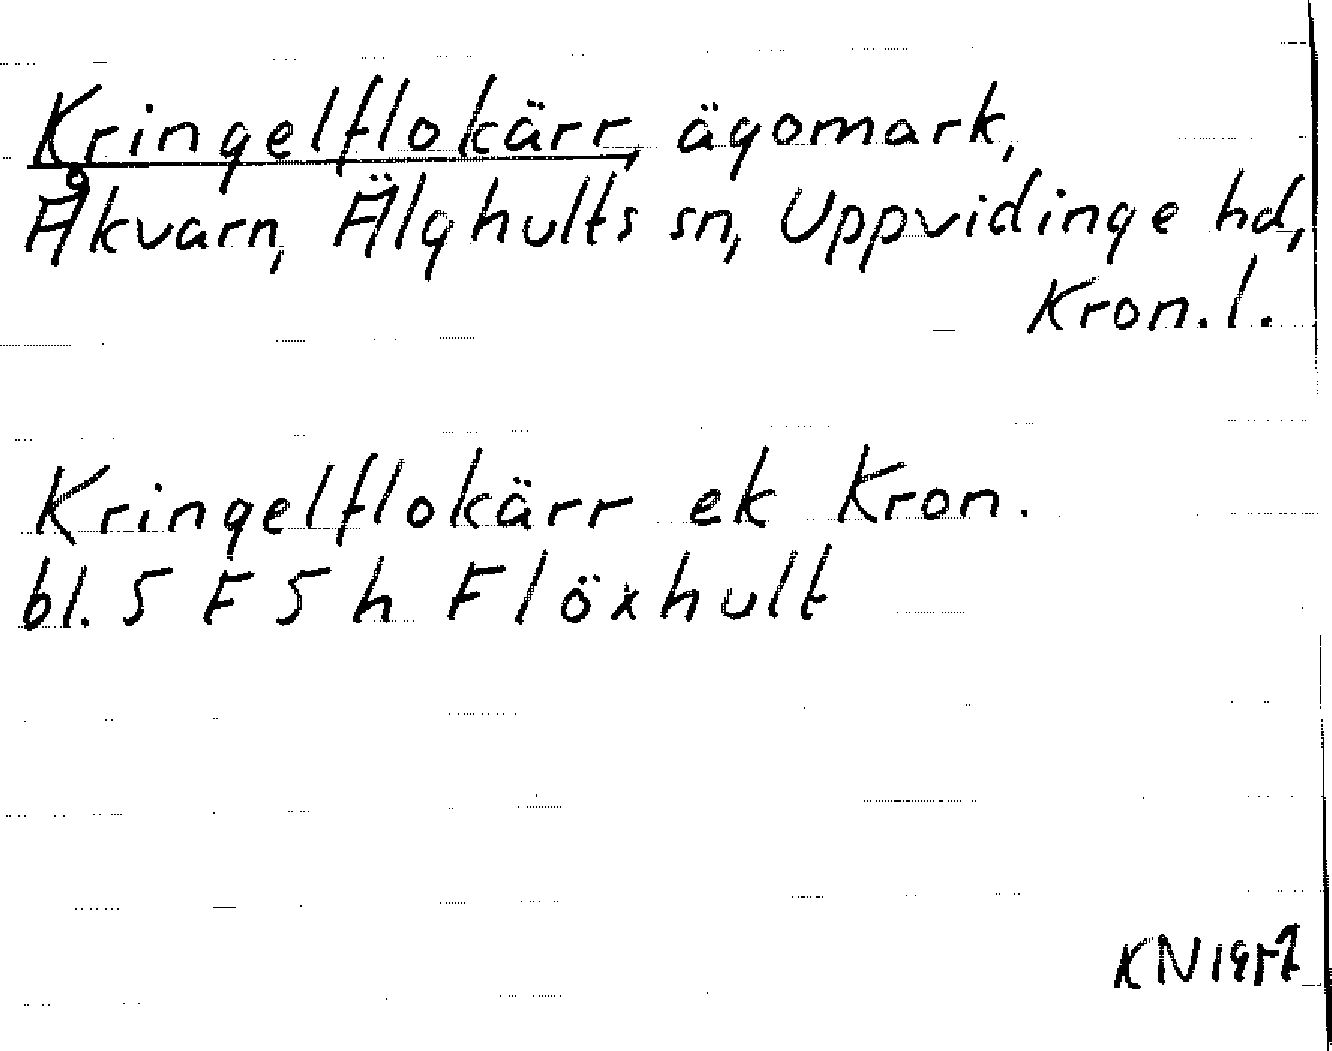 Kringelflokärr, ägomark,
Åkvarn, Älghults sn, Uppvidinge hd,
Kron. l.
Kringelflokärr ek Kron.
bl. 5 F 5 h Flöxhult
KN 1957